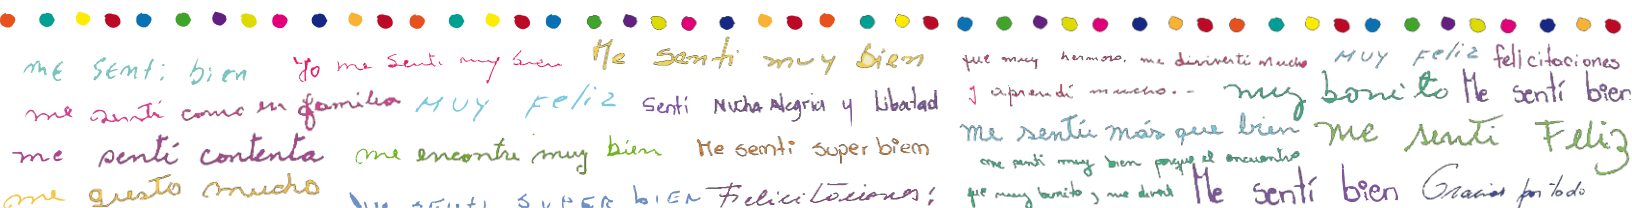 me sentí bien
Yo me senti muy bien
Me senti muy bien
que muy hermoso. me diviverti mucho
MUY FELIZ
felicitaciones
me sentí como en familia
MUY FELIZ
Sentí Mucha Alegria y Libertad
y aprendí mucho..
muy bonito
Me sentí bien
me sentí contenta
me encontre muy bien
Me semti super biem
me sentíu más que bien
me senti Feliz
me gusto mucho
me senti super bien
Felicitaciones!
me senti muy bien porque el encuentro
fue muy bonito y me diverti
Me sentí bien
Gracias por todo